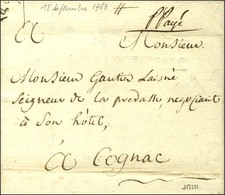 15 decembre 1784
P Payé
A Monsieur
Monsieur Gautier Laisné
Seigneur de la pradasse, negotiant
à Son hôtel,
à Cognac